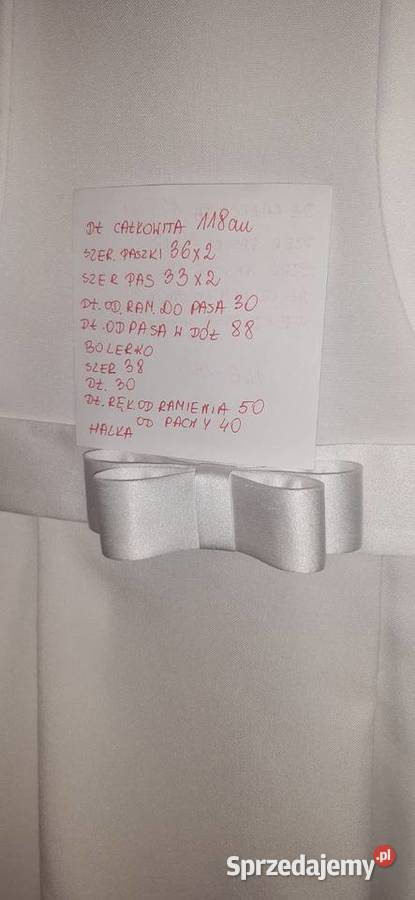 DŁ CAŁKOWITA 118cm
SZER. PASZKI 36x2
SZER PAS 33x2
DŁ. OD. RAM. DO PASA 30
DŁ. OD PASA W DÓŁ 88
BOLERKO
SZER 38
DŁ. 30
DŁ. RĘK. OD RAMIENIA 50
OD PACHY 40
HALKA
Sprzedajemy.pl